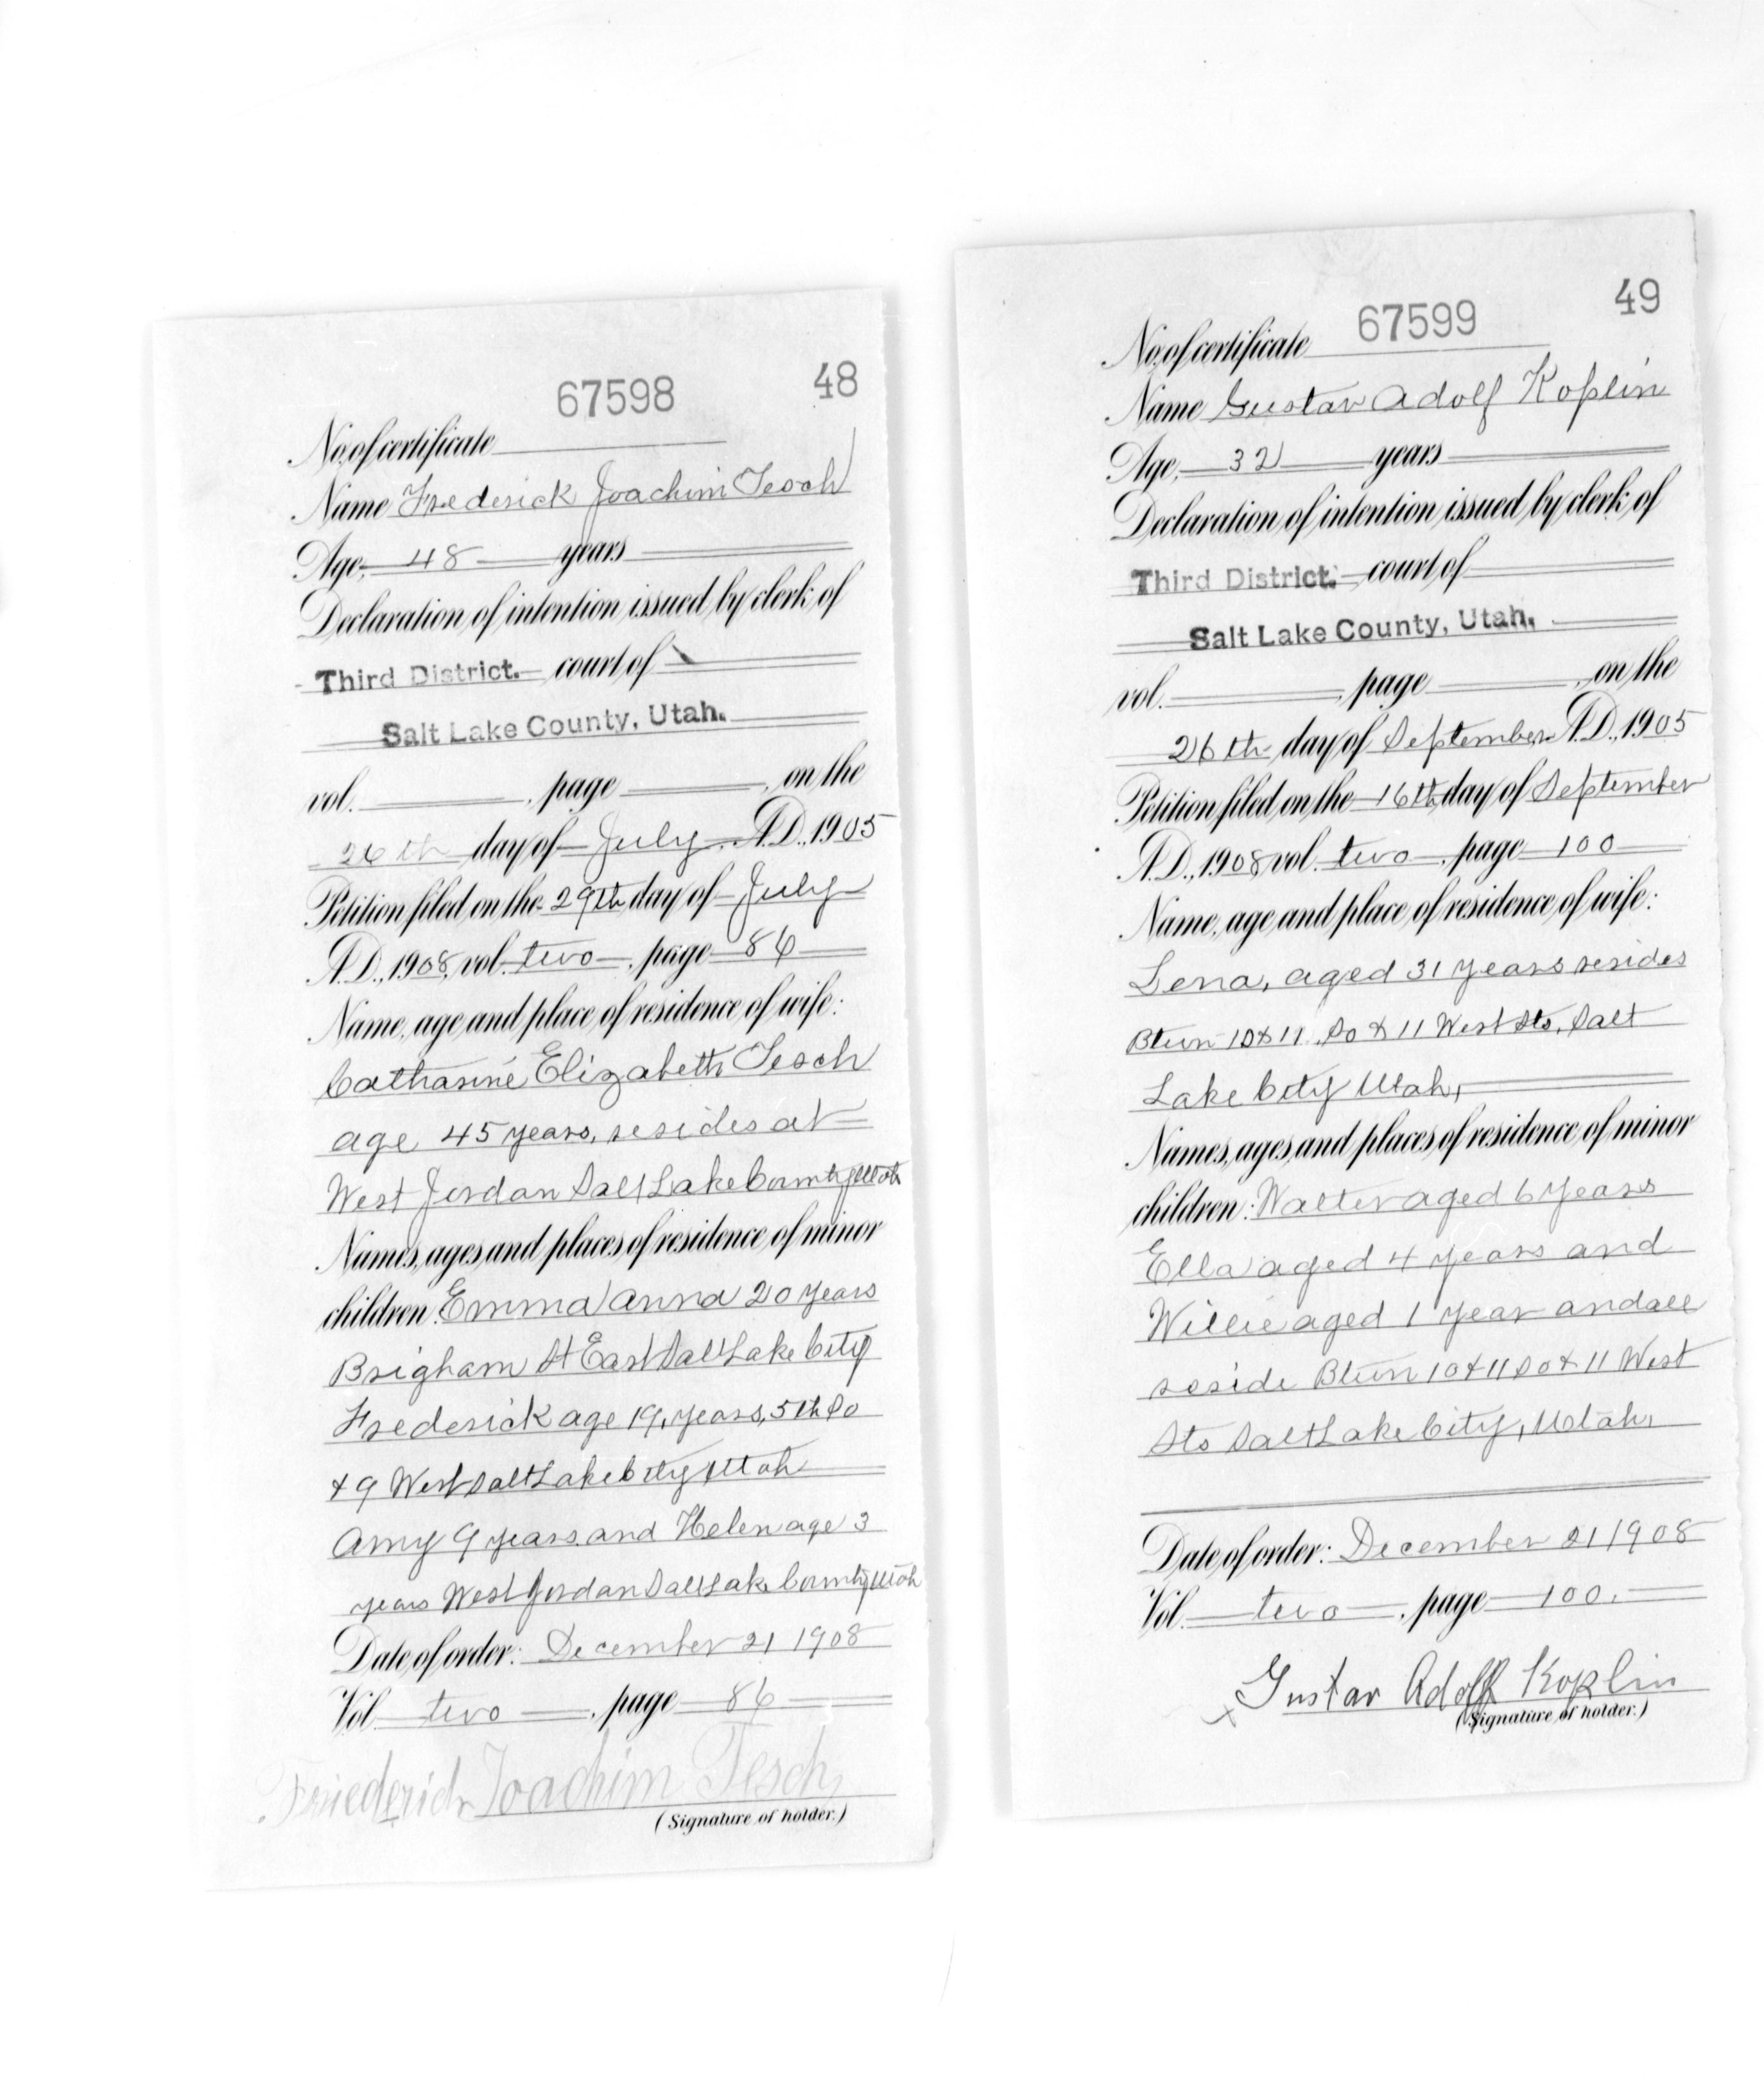 67598 48
No. of certificate
Name Frederick Joachim Tesch
Age, 48 years
Declaration of intention issued by clerk of
Third District. court of
Salt Lake County, Utah.
vol. , page , on the
26th day of July, A.D., 1905
Petition filed on the 29th day of July
A.D., 1908, vol. two, page 86
Name, age and place of residence of wife:
Catharine Elizabeth Tesch
age 45 years, resides at
West Jordan Salt Lake County Utah
Names, ages and places of residence of minor
children: Emma Anna 20 years
Brigham St East Salt Lake City
Frederick age 19, years, 5th So
& 9 West Salt Lake City Utah
Amy 9 years and Helen age 3
years West Jordan Salt Lake County Utah
Date of order: December 21 1908
Vol. two, page 86
Friederich Joachim Tesch
(Signature of holder.)
67599 49
No. of certificate
Name Gustav Adolf Koplin
Age, 32 years
Declaration of intention issued by clerk of
Third District. court of
Salt Lake County, Utah.
vol. , page , on the
26th day of September A.D., 1905
Petition filed on the 16th day of September
A.D., 1908 vol. two, page 100
Name, age and place of residence of wife:
Lena, aged 31 years resides
Btwn 10 & 11 So & 11 West Sts, Salt
Lake City Utah,
Names, ages and places of residence of minor
children: Walter aged 6 years
Ella aged 4 years and
Willie aged 1 year and all
reside Btwn 10 & 11 So & 11 West
Sts Salt Lake City, Utah,
Date of order: December 21 1908
Vol. two, page 100.
x Gustav Adolf Koplin
(Signature of holder.)